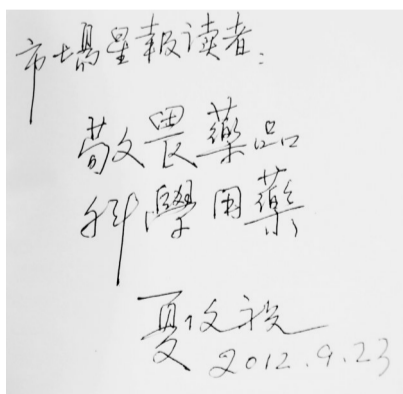 市場星報读者:
敬畏藥品
科學用藥
夏
2012.9.23